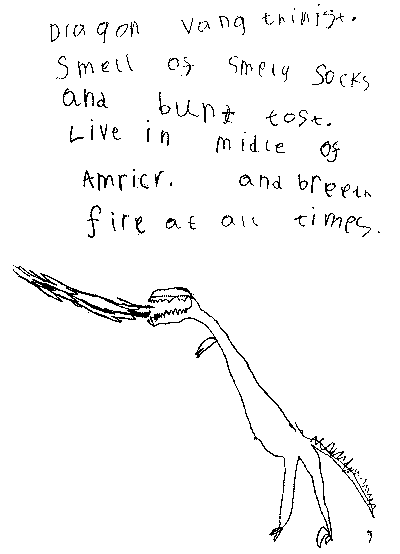 Dragon Vang thinist.
Smell of Smely Socks
and bunt tost.
Live in midle of
Amricr. and breeth
fire at all times.